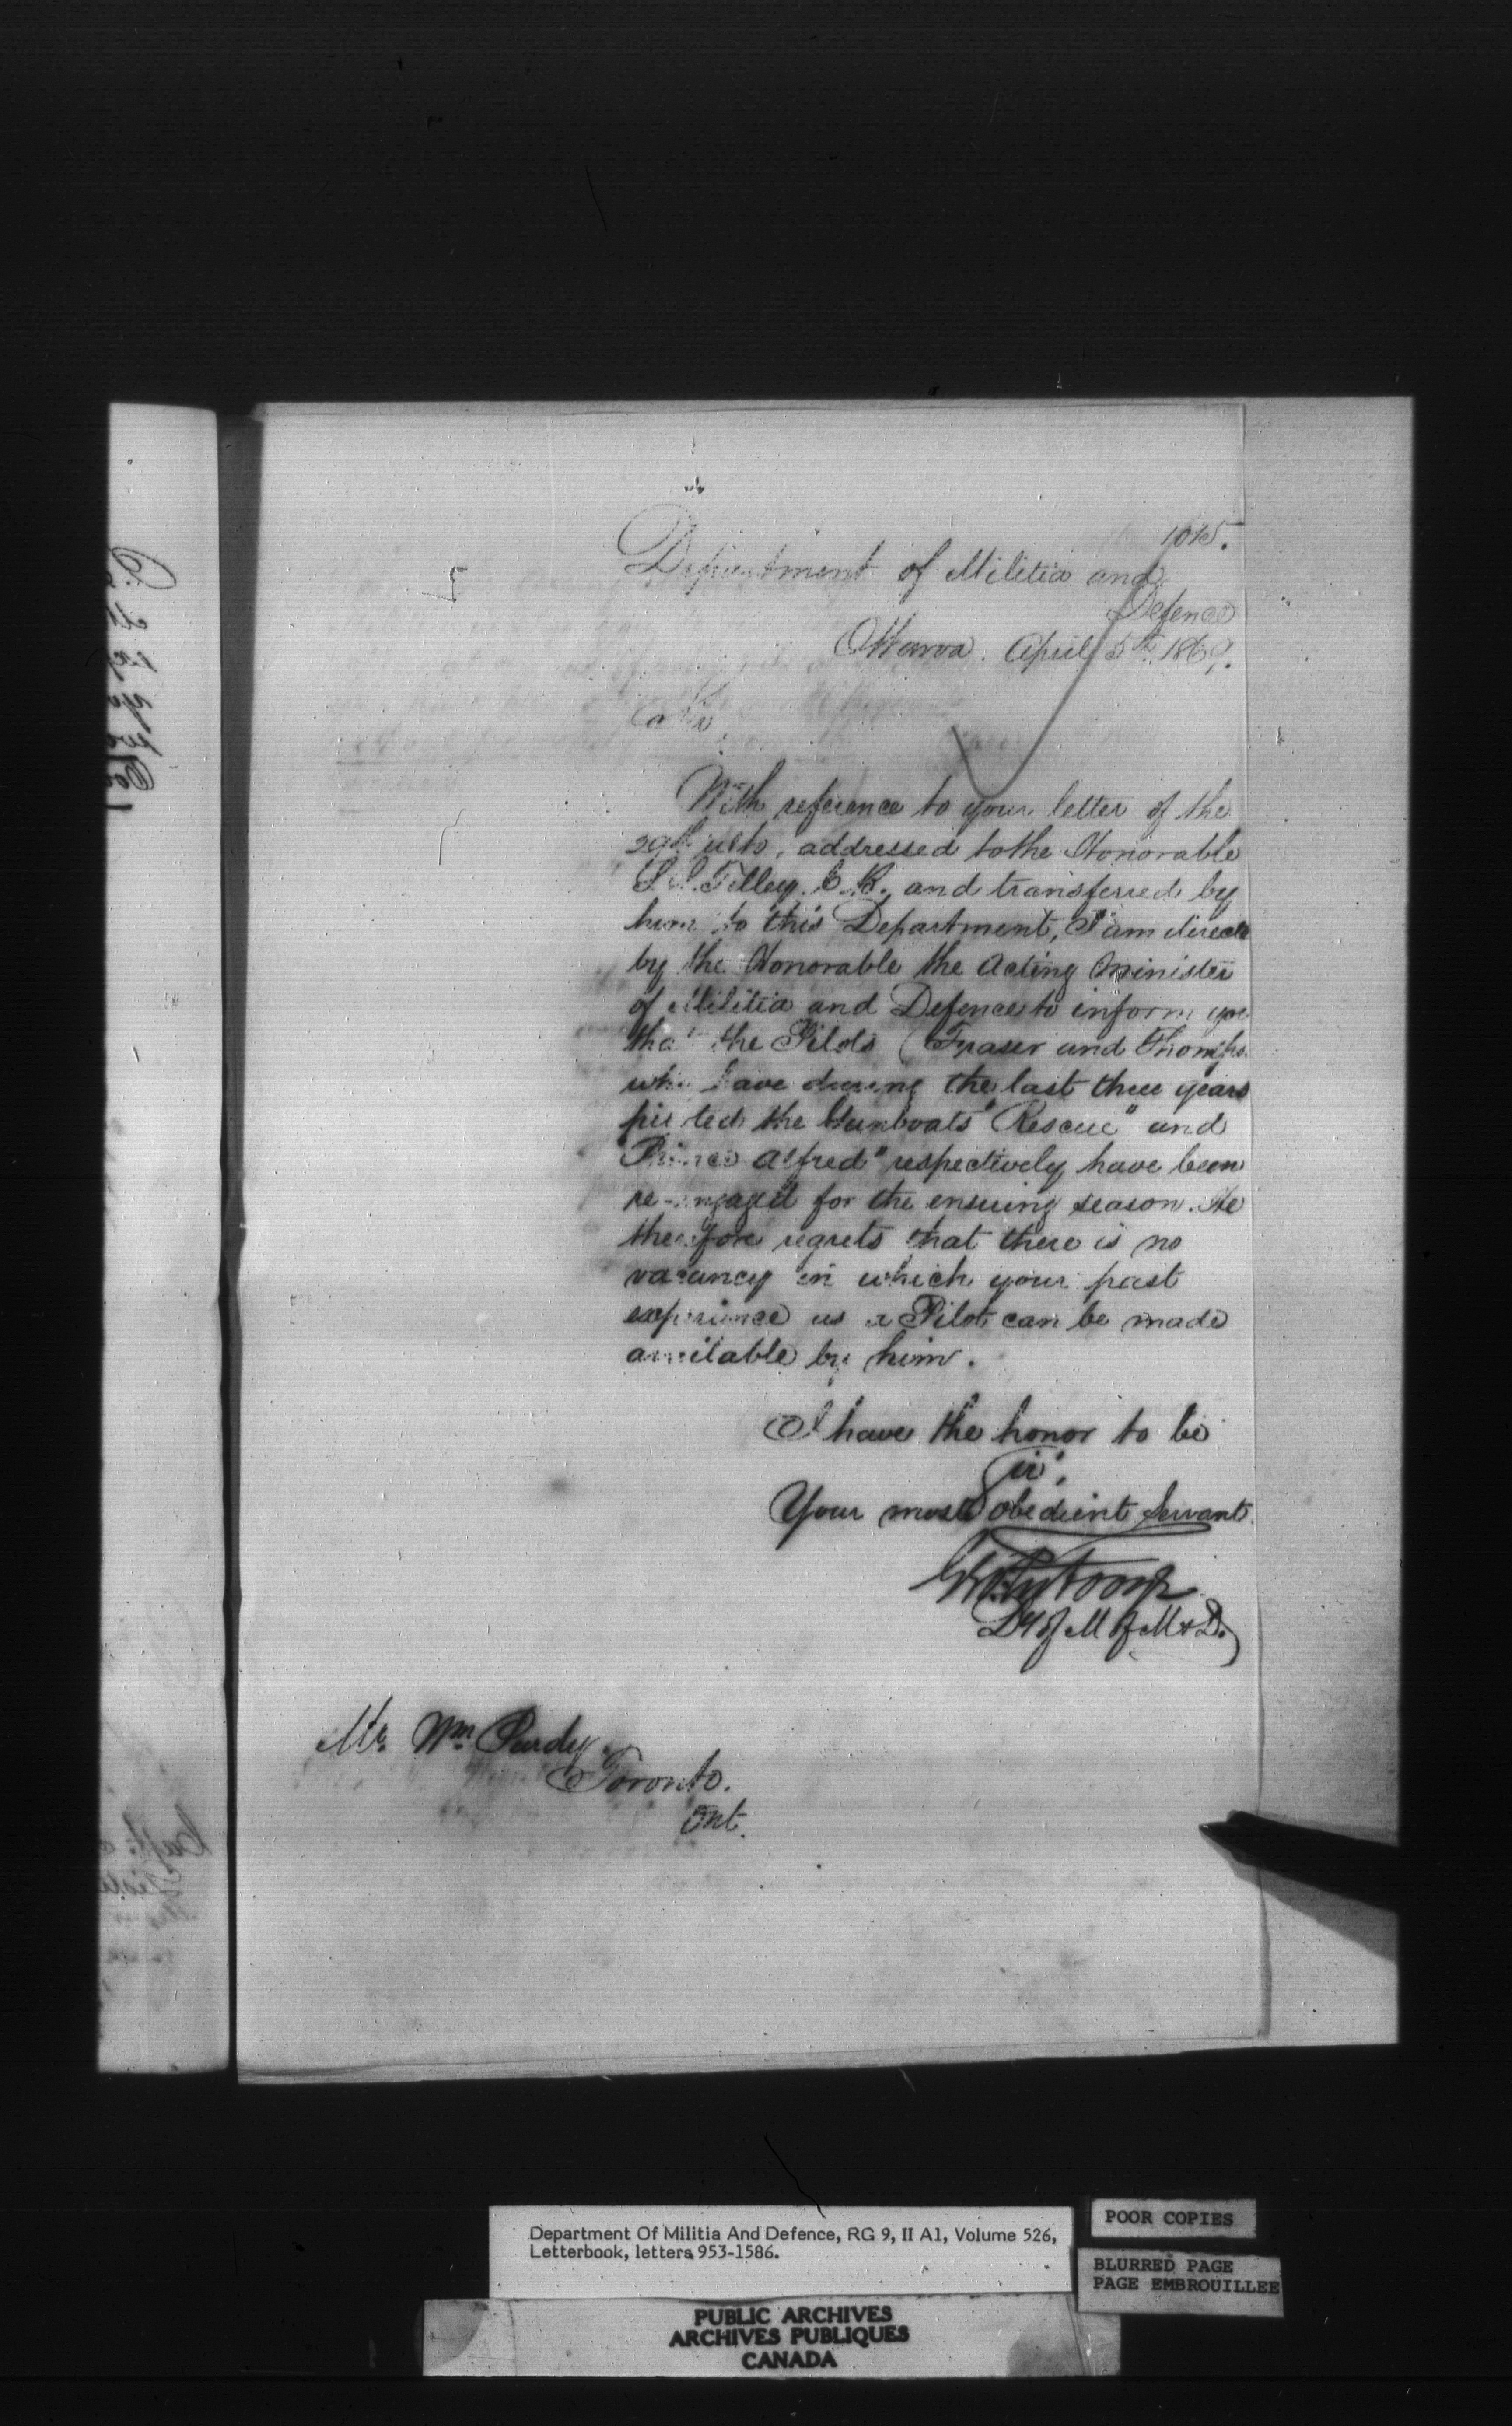 1015.
Department of Militia and
Defence
Ottawa. April 5th. 1869.
Sir,
With reference to your letter of the
29th ulto, addressed to the Honorable
S. L. Tilley C. B. and transferred by
him to this Department, I am directe
by the Honorable the Acting Minister
of Militia and Defence to inform you
that the Pilots (Fraser and Thomps
who have during the last three years
piloted the Gunboats "Rescue" and
"Prince Alfred" respectively have been
re-engaged for the ensuing season. He
therefore regrets that there is no
vacancy in which your past
experience as a Pilot can be made
available by him.
I have the honor to be
Sir,
Your most obedient Servant.
D of M of M & D.
Mr. Wm. Purdy.
Toronto.
Ont.
Department Of Militia And Defence, RG 9, II A1, Volume 526,
Letterbook, letters 953-1586.
POOR COPIES
BLURRED PAGE
PAGE EMBROUILLEE
PUBLIC ARCHIVES
ARCHIVES PUBLIQUES
CANADA